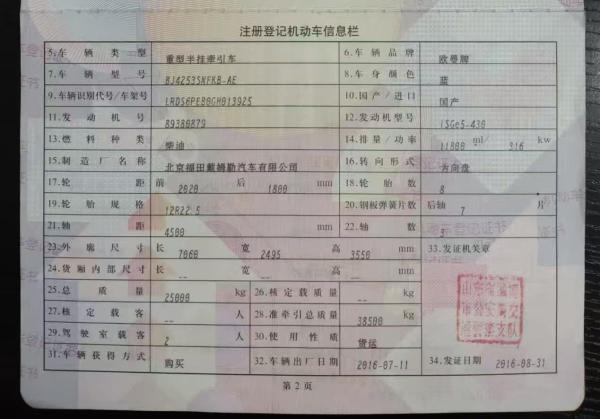 注册登记机动车信息栏
5.车辆类型 重型半挂牵引车 6.车辆品牌 欧曼牌
7.车辆型号 BJ4253SNFKB-AE 8.车身颜色 蓝
9.车辆识别代号/车架号 LRDS6PEB0GH013925 10.国产/进口 国产
11.发动机号 89380879 12.发动机型号 ISGe5-430
13.燃料种类 柴油 14.排量/功率 11800 ml/ 316 kw
15.制造厂名称 北京福田戴姆勒汽车有限公司 16.转向形式 方向盘
17.轮距 前 2020 后 1800 mm 18.轮胎数 8
19.轮胎规格 12R22.5 20.钢板弹簧片数 后轴 7 片
21.轴距 4500 mm 22.轴数 3
23.外廓尺寸 长 7060 宽 2495 高 3550 mm 33.发证机关章
24.货厢内部尺寸 长 -- 宽 -- 高 -- mm
25.总质量 25000 kg 26.核定载质量 -- kg
27.核定载客 -- 人 28.准牵引总质量 38500 kg
29.驾驶室载客 2 人 30.使用性质 货运
31.车辆获得方式 购买 32.车辆出厂日期 2016-07-11 34.发证日期 2016-08-31
第2页